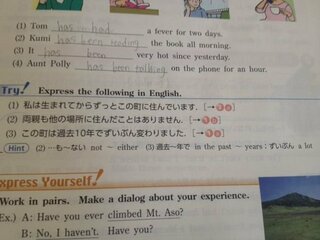 (1) Tom has had a fever for two days.
(2) Kumi has been reading the book all morning.
(3) It has been very hot since yesterday.
(4) Aunt Polly has been talking on the phone for an hour.
Try! Express the following in English.
(1) 私は生まれてからずっとこの町に住んでいます. [→
(2) 両親も他の場所に住んだことはありません. [→
(3) この町は過去10年でずいぶん変わりました. [→
Hint (2) …も～ない not ～ either (3) 過去―年で in the past ～ years : ずいぶん a lot
xpress Yourself!
Work in pairs. Make a dialog about your experience.
Ex.) A: Have you ever climbed Mt. Aso?
B: No, I haven't. Have you?